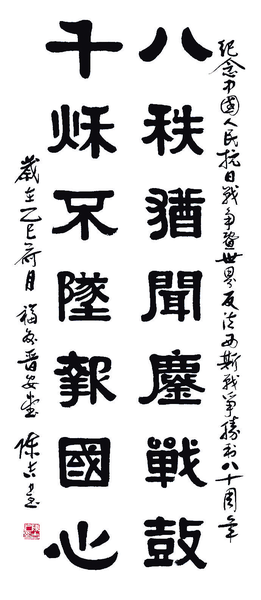 紀念中國人民抗日戰爭暨世界反法西斯戰爭勝利八十周年
八秩猶聞鏖戰鼓
千秌不墜報國心
歲在乙巳荷月 福州晉安 陳吉